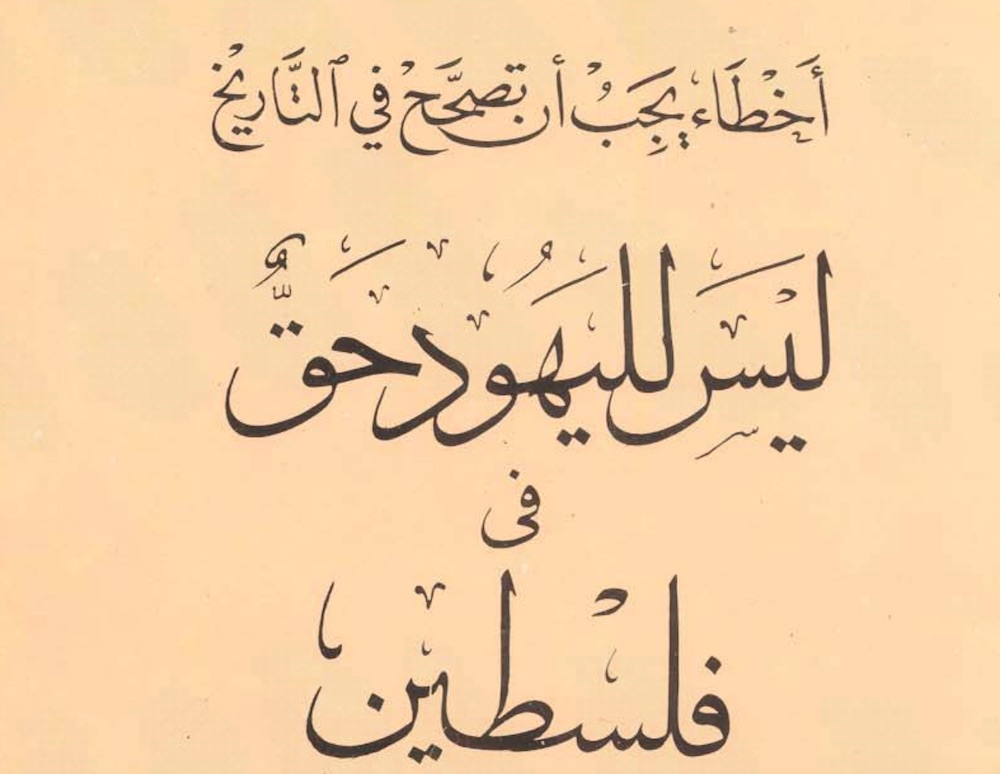 أَخْطَاء يَجِبُ أن تصحَّح في التَّاريخ
ليسَ لليَهُود حَقٌّ
فى
فلسطين